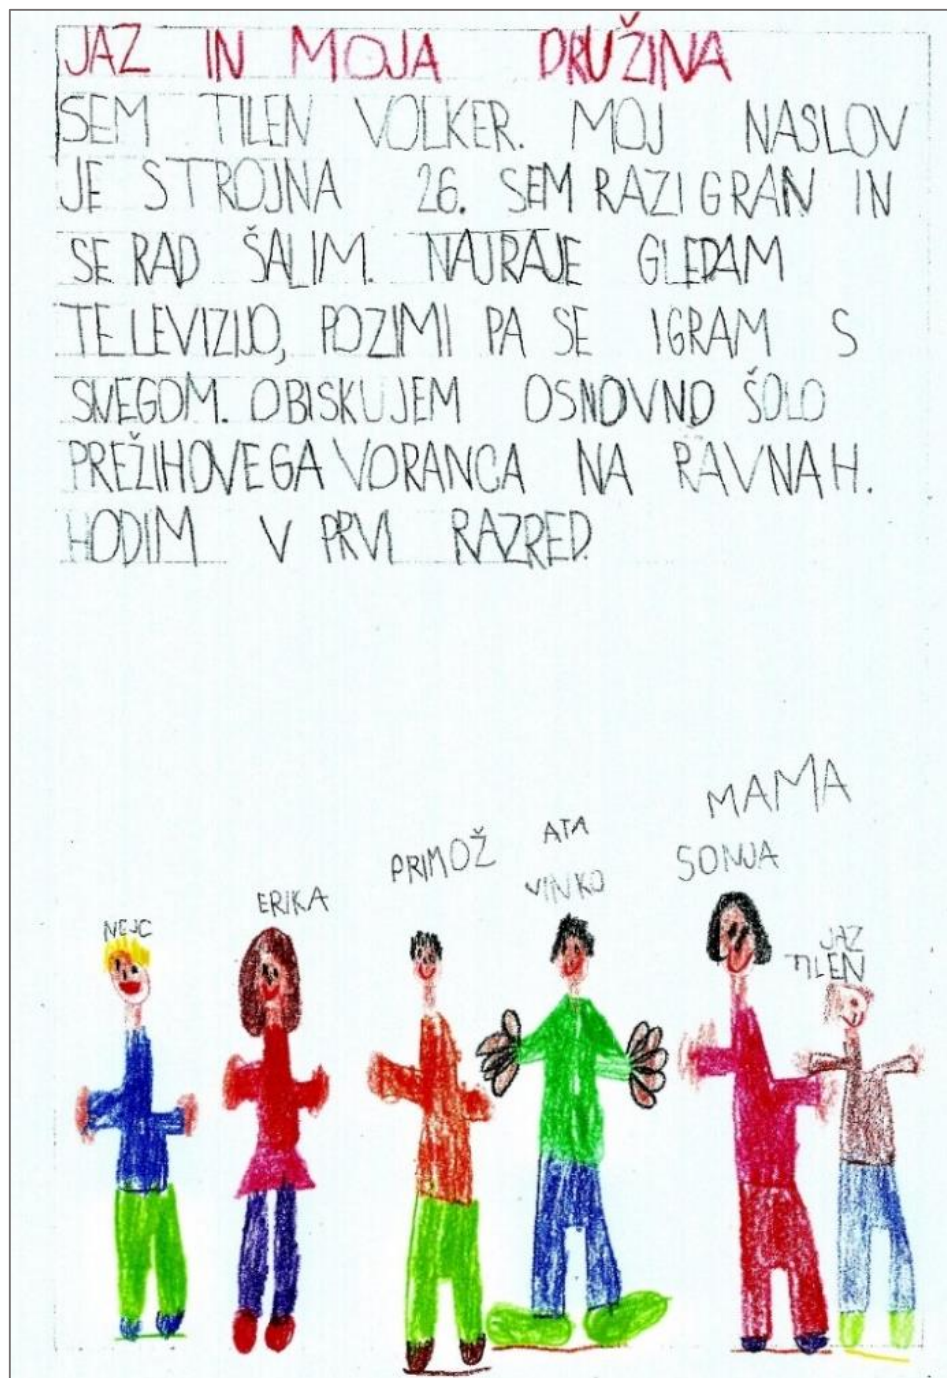 JAZ IN MOJA DRUŽINA
SEM TILEN VOLKER. MOJ NASLOV
JE STROJNA 26. SEM RAZIGRAN IN
SE RAD ŠALIM. NAJRAJE GLEDAM
TELEVIZIJO, POZIMI PA SE IGRAM S
SNEGOM. OBISKUJEM OSNOVNO ŠOLO
PREŽIHOVEGA VORANCA NA RAVNAH.
HODIM V PRVI RAZRED.
NEJC
ERIKA
PRIMOŽ
ATA
VINKO
MAMA
SONJA
JAZ
TILEN